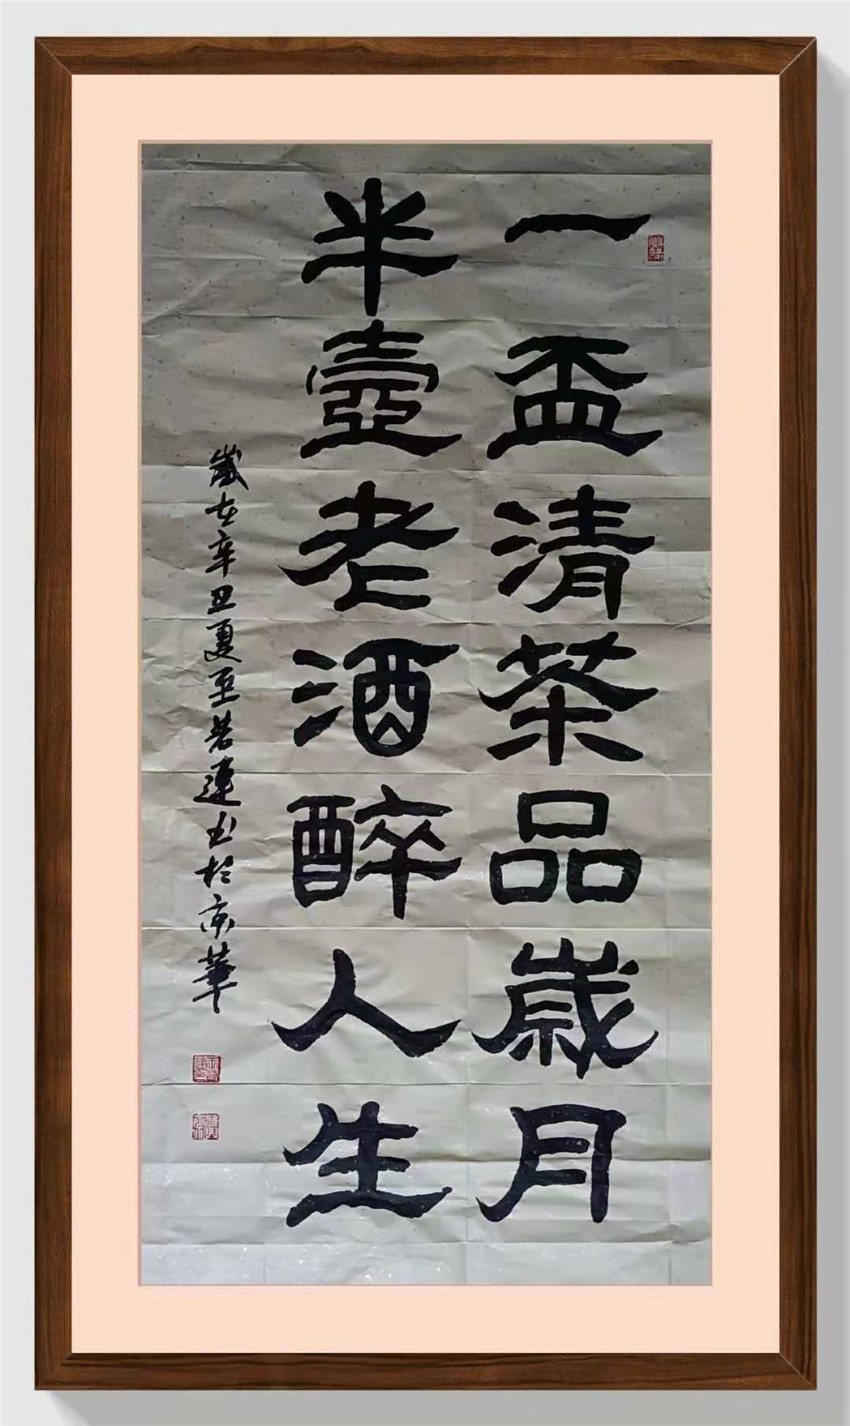 一盃清茶品歳月
半壺老酒醉人生
歲在辛丑夏至若連书於京華